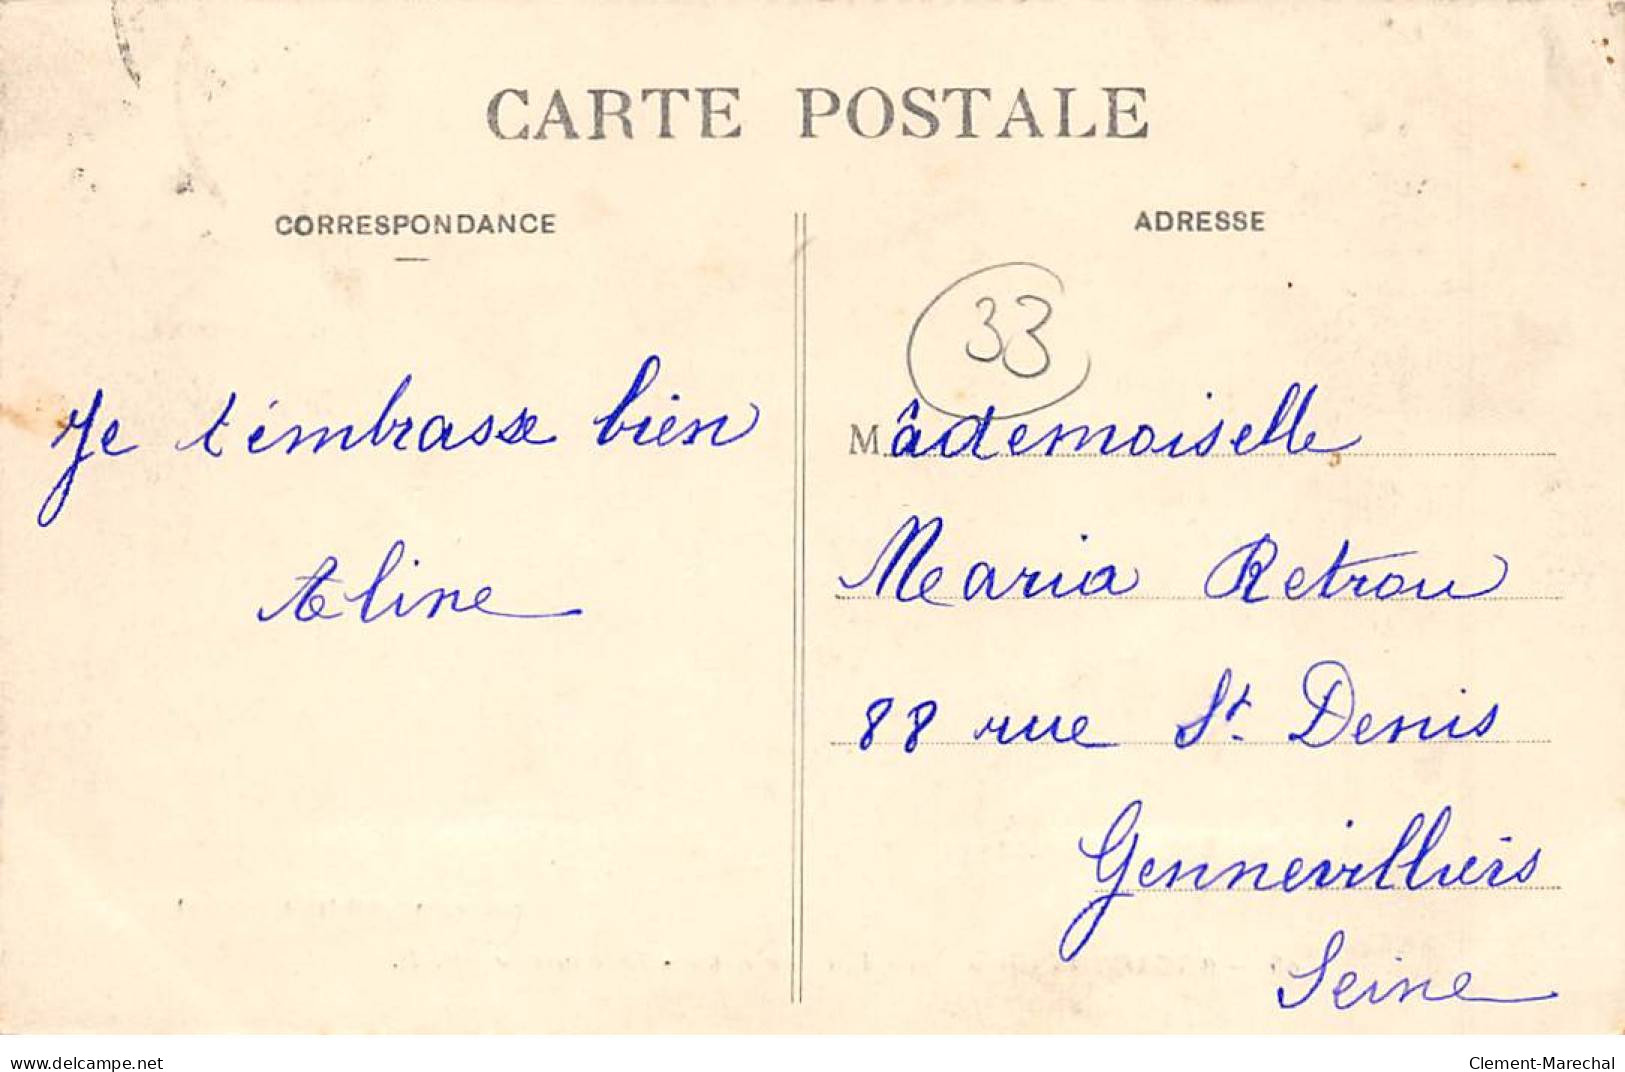 CARTE POSTALE
CORRESPONDANCE
ADRESSE
33
Je t'embrasse bien
Aline
Mademoiselle
Maria Retrou
88 rue St. Denis
Gennevilliers
Seine
www.delcampe.net
Clement-Marechal